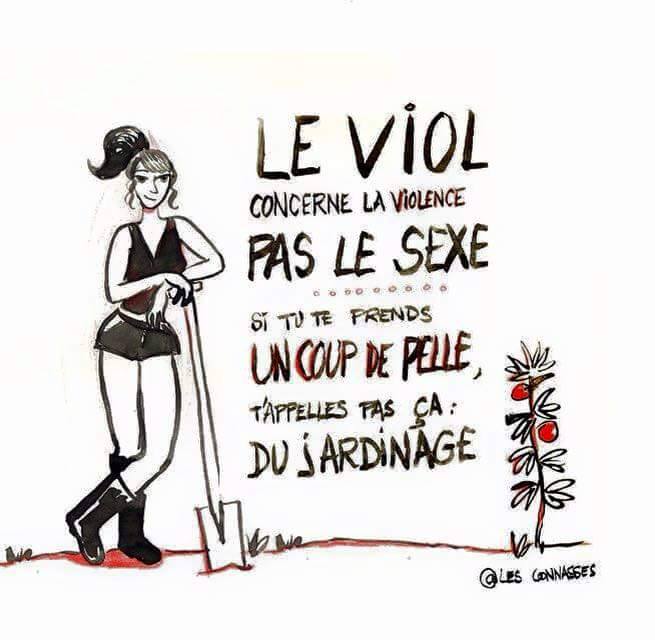 LE VIOL
CONCERNE LA VIOLENCE
PAS LE SEXE
SI TU TE PRENDS
UN COUP DE PELLE,
T'APPELLES PAS ÇA :
DU JARDINAGE
@LES CONNASSES